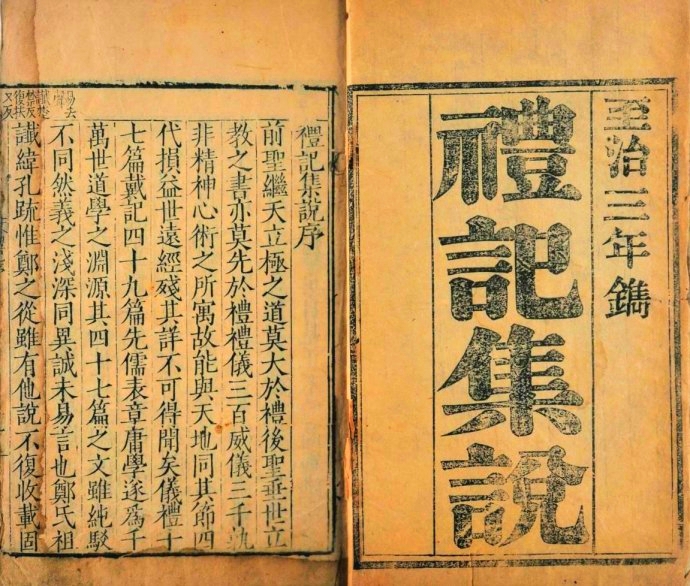 至治三年鐫
禮記集說
禮記集說序
前聖繼天立極之道莫大於禮後聖垂世立
教之書亦莫先於禮禮儀三百威儀三千孰
非精神心術之所寓故能與天地同其節四
代損益世遠經殘其詳不可得聞矣儀禮十
七篇戴記四十九篇先儒表章庸學遂為千
萬世道學之淵源其四十七篇之文雖純駁
不同然義之淺深同異誠未易言也鄭氏祖
讖緯孔疏惟鄭之從雖有他說不復收載固
易去
聲
讖楚
禁反
復扶
又反